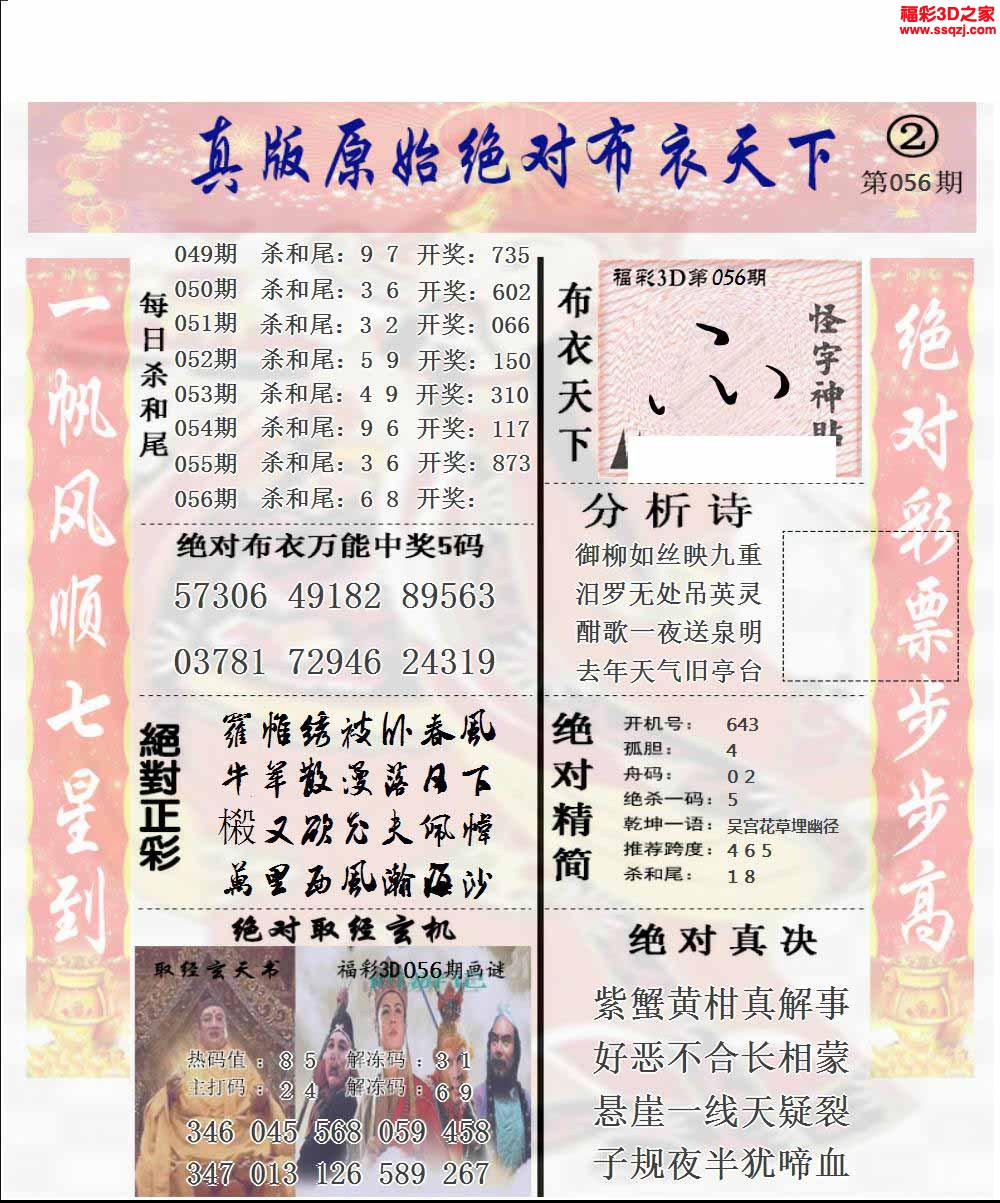 福彩3D之家
www.ssqzj.com
真版原始绝对布衣天下
②
第056期
一帆风顺七星到
每日杀和尾
049期 杀和尾：9 7 开奖：735
050期 杀和尾：3 6 开奖：602
051期 杀和尾：3 2 开奖：066
052期 杀和尾：5 9 开奖：150
053期 杀和尾：4 9 开奖：310
054期 杀和尾：9 6 开奖：117
055期 杀和尾：3 6 开奖：873
056期 杀和尾：6 8 开奖：
绝对布衣万能中奖5码
57306 49182 89563
03781 72946 24319
絕對正彩
羅帷绣被卧春風
牛羊散漫落日下
椴又欲允夫佩幃
萬里西風瀚海沙
绝对取经玄机
取经玄天书
福彩3D056期画谜
热码值：8 5 解冻码：3 1
主打码：2 4 解冻码：6 9
346 045 568 059 458
347 013 126 589 267
布衣天下
福彩3D第056期
怪字神贴
分析诗
御柳如丝映九重
汨罗无处吊英灵
酣歌一夜送泉明
去年天气旧亭台
绝对精简
开机号：643
孤胆：4
舟码：0 2
绝杀一码：5
乾坤一语：吴宫花草埋幽径
推荐跨度：4 6 5
杀和尾：1 8
绝对真决
紫蟹黄柑真解事
好恶不合长相蒙
悬崖一线天疑裂
子规夜半犹啼血
绝对彩票步步高